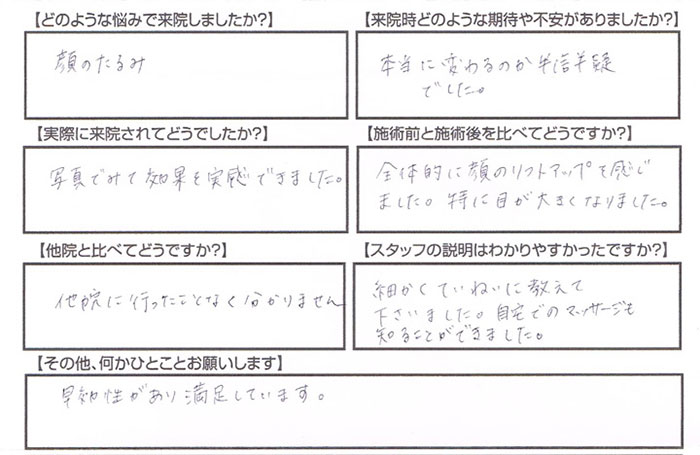 【どのような悩みで来院しましたか?】
顔のたるみ
【来院時どのような期待や不安がありましたか?】
本当に変わるのか半信半疑
でした。
【実際に来院されてどうでしたか?】
写真でみて効果を実感できました。
【施術前と施術後を比べてどうですか?】
全体的に顔のリフトアップを感じ
ました。特に目が大きくなりました。
【他院と比べてどうですか?】
他院に行ったことなく分かりません
【スタッフの説明はわかりやすかったですか?】
細かくていねいに教えて
下さいました。自宅でのマッサージも
知ることができました。
【その他、何かひとことお願いします】
早効性があり満足しています。